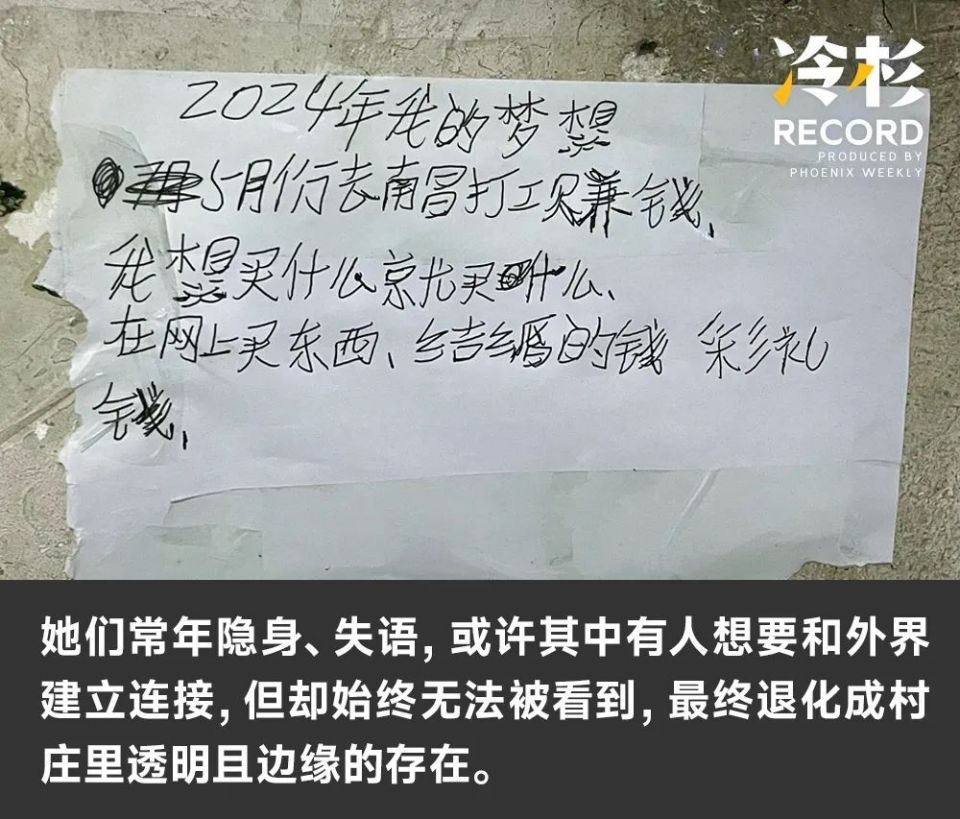 冷杉
RECORD
PRODUCED BY
PHOENIX WEEKLY
2024年我的梦想
5月份去南昌打工赚钱、
我想买什么京尤买什么、
在网上买东西、结婚的钱 彩礼
钱、
她们常年隐身、失语,或许其中有人想要和外界
建立连接,但却始终无法被看到,最终退化成村
庄里透明且边缘的存在。